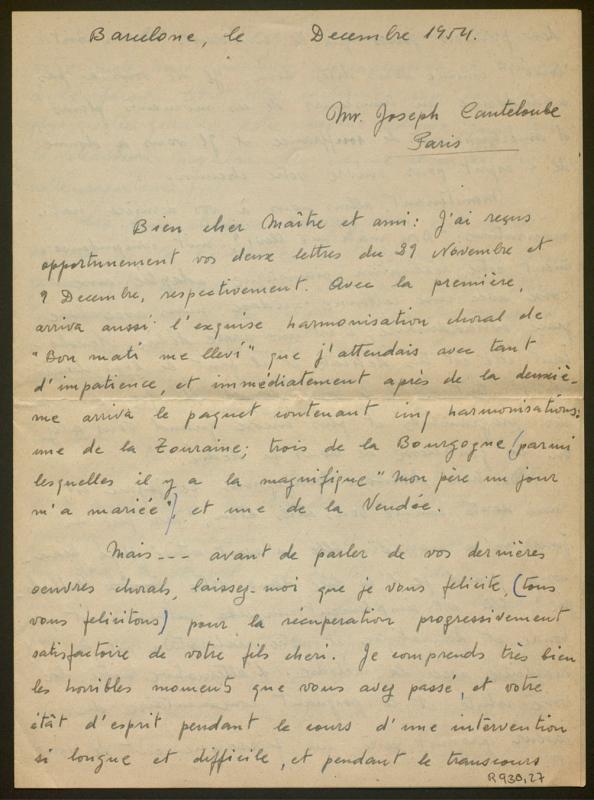 Barcelone, le Decembre 1954.
Mr. Joseph Canteloube
Paris
Bien cher Maître et ami: J'ai reçus
opportunement vos deux lettres du 29 Novembre et
9 Decembre, respectivement. Avec la première,
arriva aussi l'exquise harmonisation choral de
"Bon mati me lleví" que j'attendais avec tant
d'impatience, et immédiatement après de la deuxiè-
me arriva le paquet contenant cinq harmonisations:
une de la Touraine; trois de la Bourgogne (parmi
lesquelles il y a la magnifique "Mon père un jour
m'a mariée") et une de la Vendée.
Mais--- avant de parler de vos dernières
oeuvres chorals, laissez-moi que je vous felicite, (tous
vous felicitons) pour la récuperation progressivement
satisfactoire de votre fils cheri. Je comprends très bien
les horribles moments que vous avez passé, et votre
étât d'esprit pendant le cours d'une intervention
si longue et difficile, et pendant le transcours
R930,27